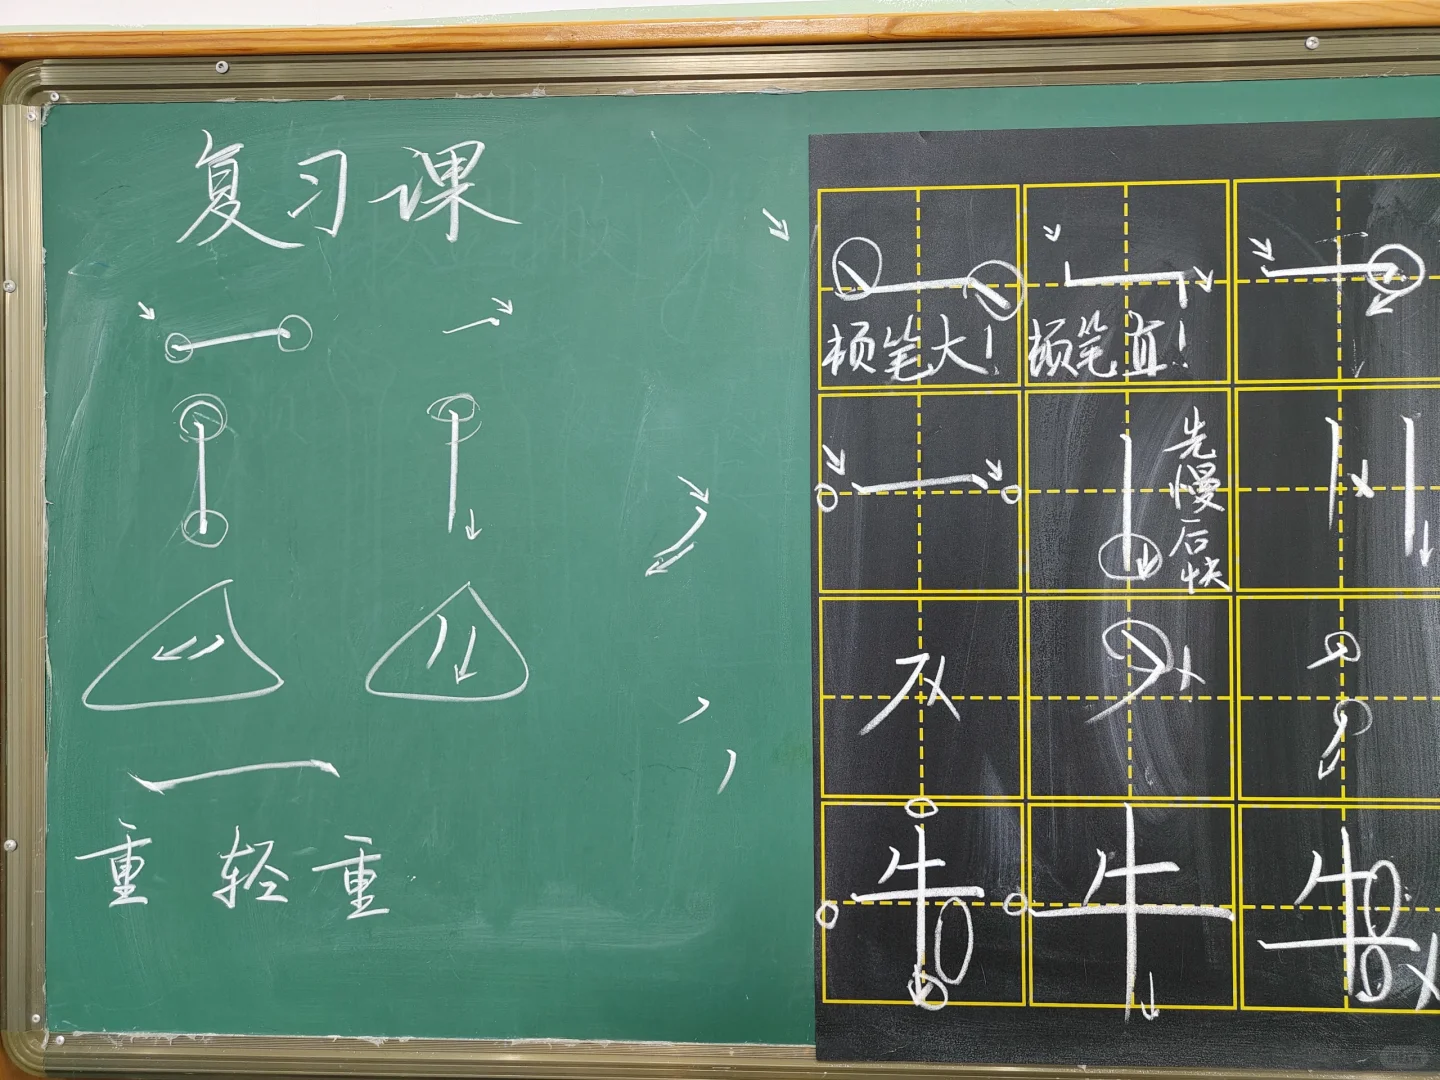 复习课
重 轻 重
顿笔大！
顿笔直！
先慢后快
牛
牛
牛